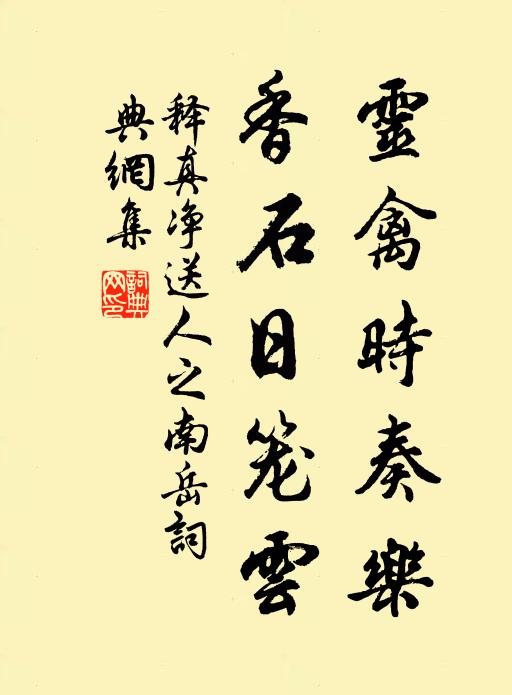 靈禽時奏樂
香石日笼雲
释真净送人之南岳詞
典網集
詞典網印